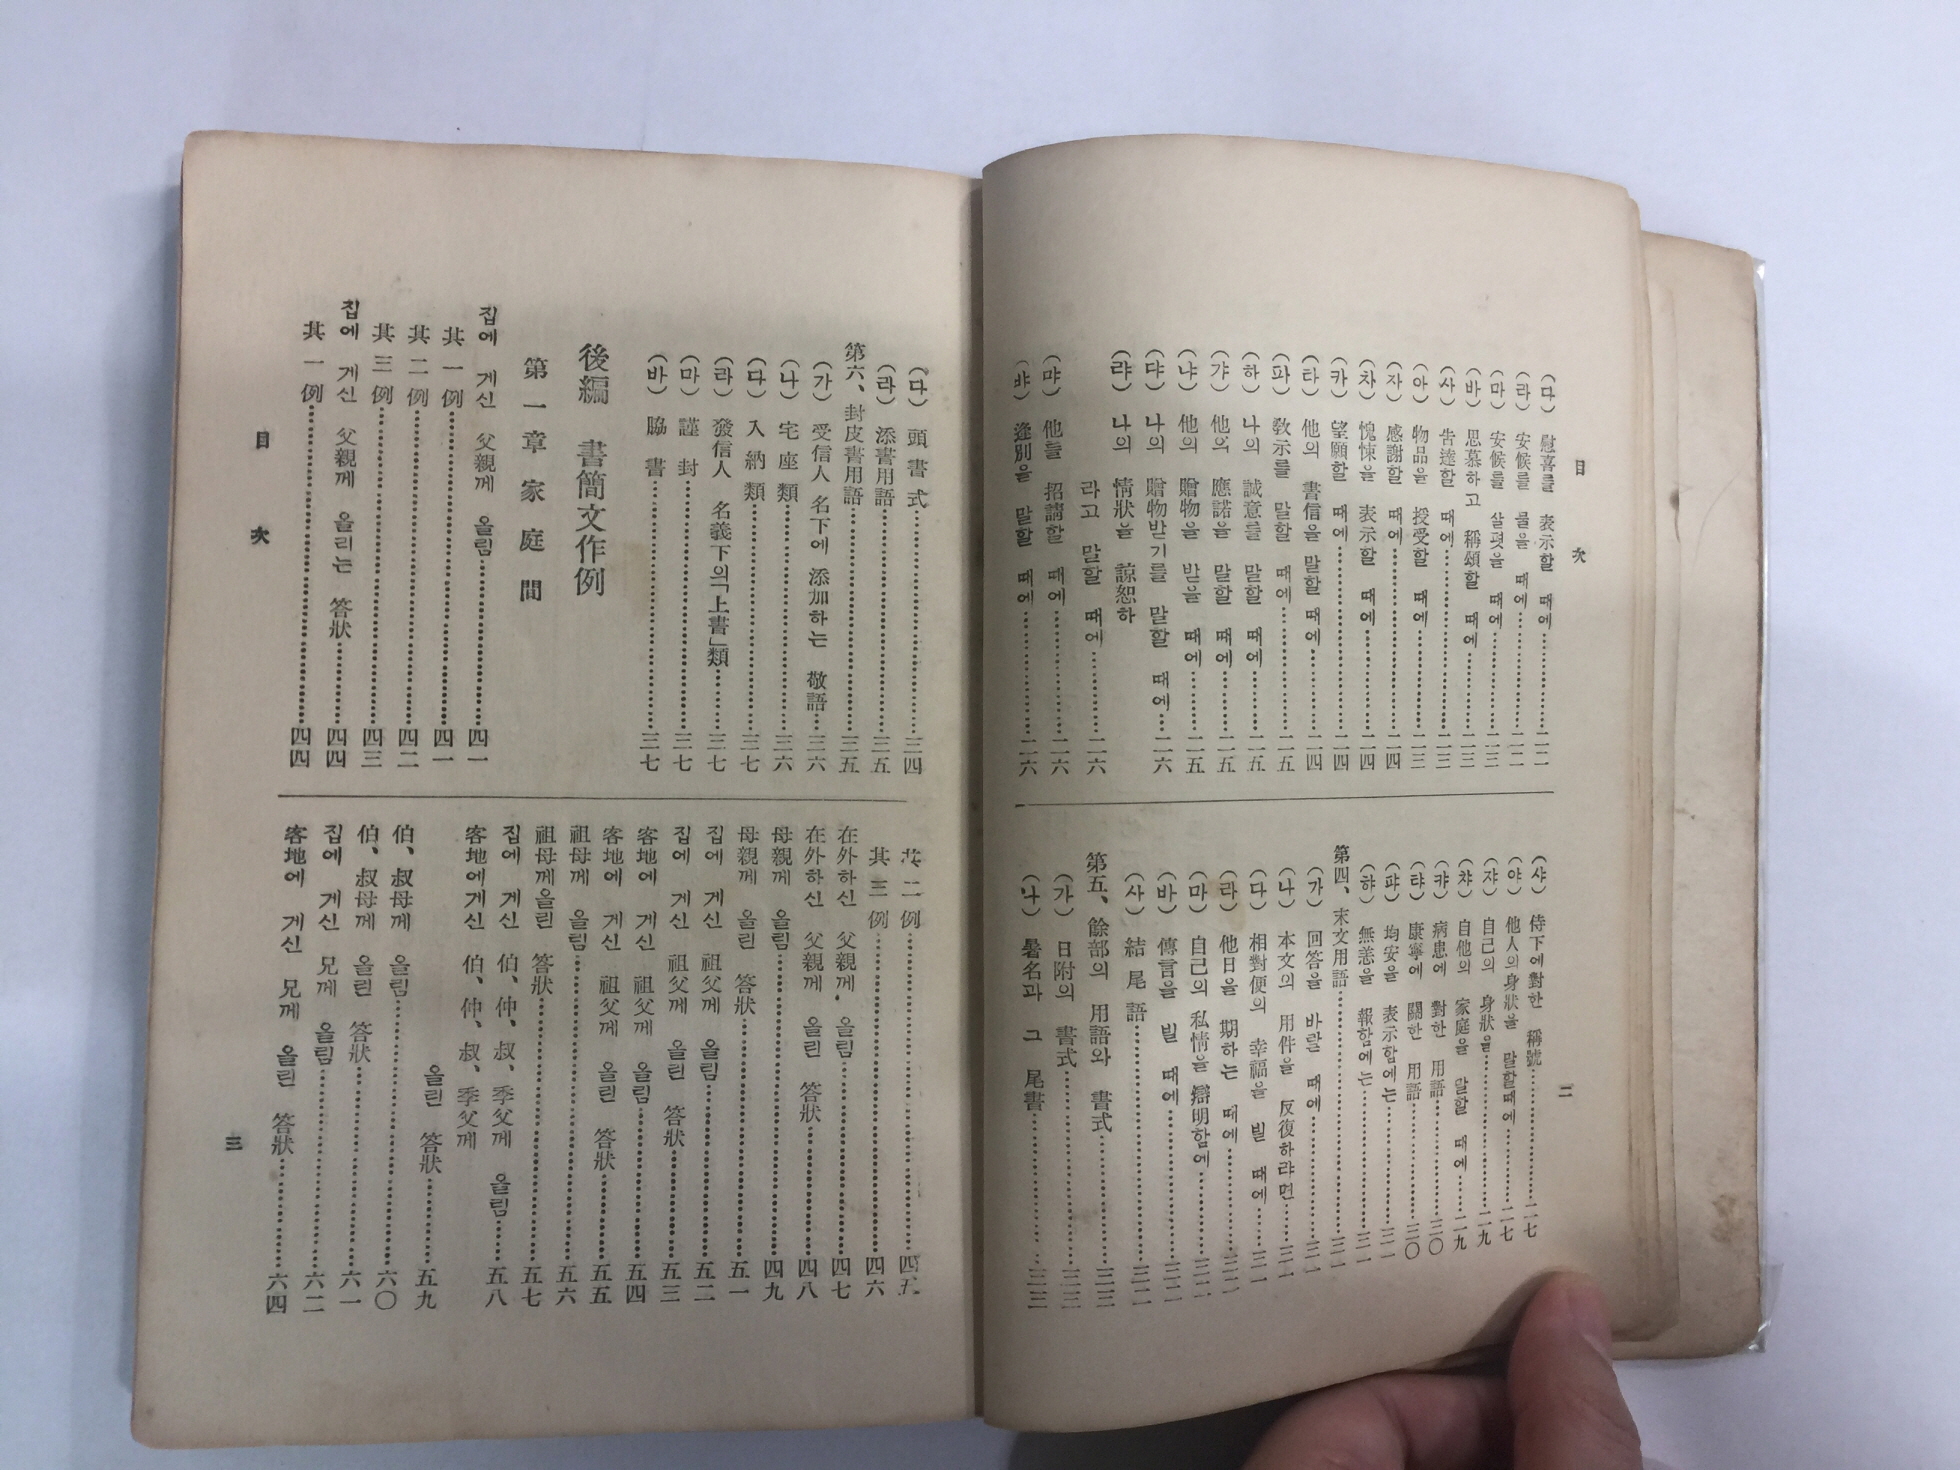 目次
二
(다) 慰喜를 表示할 때에……二二
(라) 安候를 물을 때에……二二
(마) 安候를 살폇을 때에……二三
(바) 思慕하고 稱頌할 때에……二三
(사) 告達할 때에……二三
(아) 物品을 授受할 때에……二三
(자) 感謝할 때에……二四
(차) 愧悚을 表示할 때에……二四
(카) 望願할 때에……二四
(타) 他의 書信을 말할 때에……二四
(파) 敎示를 말할 때에……二五
(하) 나의 誠意를 말할 때에……二五
(갸) 他의 應諾을 말할 때에……二五
(냐) 他의 贈物을 받을 때에……二五
(댜) 나의 贈物받기를 말할 때에……二六
(랴) 나의 情狀을 諒恕하
라고 말할 때에……二六
(먀) 他를 招請할 때에……二六
(뱌) 逢別을 말할 때에……二六
(샤) 侍下에對한 稱號……二七
(야) 他人의身狀을 말할때에……二七
(쟈) 自己의 身狀을……二九
(챠) 自他의 家庭을 말할 때에……二九
(캬) 病患에 對한 用語……三〇
(탸) 康寧에 關한 用語……三〇
(퍄) 均安을 表示함에는……三一
(햐) 無恙을 報함에는……三一
第四、末文用語
(가) 回答을 바랄 때에……三一
(나) 本文의 用件을 反復하랴면……三一
(다) 相對便의 幸福을 빌 때에……三一
(라) 他日을 期하는 때에……三二
(마) 自己의 私情을 辯明함에……三二
(바) 傳言을 빌 때에……三二
(사) 結尾語……三二
第五、餘部의 用語와 書式……三三
(가) 日附의 書式……三三
(나) 署名과 그 尾書……三三
(다) 頭書式……三四
(라) 添書用語……三五
第六、封皮書用語……三五
(가) 受信人 名下에 添加하는 敬語……三六
(나) 宅座類……三六
(다) 入納類……三七
(라) 發信人 名義下의「上書」類……三七
(마) 謹封……三七
(바) 脇書……三七
後編 書簡文作例
第一章 家庭間
집에 게신 父親께 올림……四一
其一例……四一
其二例……四二
其三例……四三
집에 게신 父親께 올리는 答狀……四四
其一例……四四
其二例……四五
其三例……四六
在外하신 父親께 올림……四七
在外하신 父親께 올린 答狀……四八
母親께 올림……四九
母親께 올린 答狀……五一
집에 게신 祖父께 올림……五二
집에 게신 祖父께 올린 答狀……五三
客地에 게신 祖父께 올림……五四
客地에 게신 祖父께 올린 答狀……五五
祖母께 올림……五六
祖母께올린 答狀……五七
집에 게신 伯、仲、叔、季父께 올림……五八
客地에게신 伯、仲、叔、季父께
올린 答狀……五九
伯、叔母께 올림……六〇
伯、叔母께 올린 答狀……六一
집에 게신 兄께 올림……六二
客地에 게신 兄께 올린 答狀……六四
目次
三